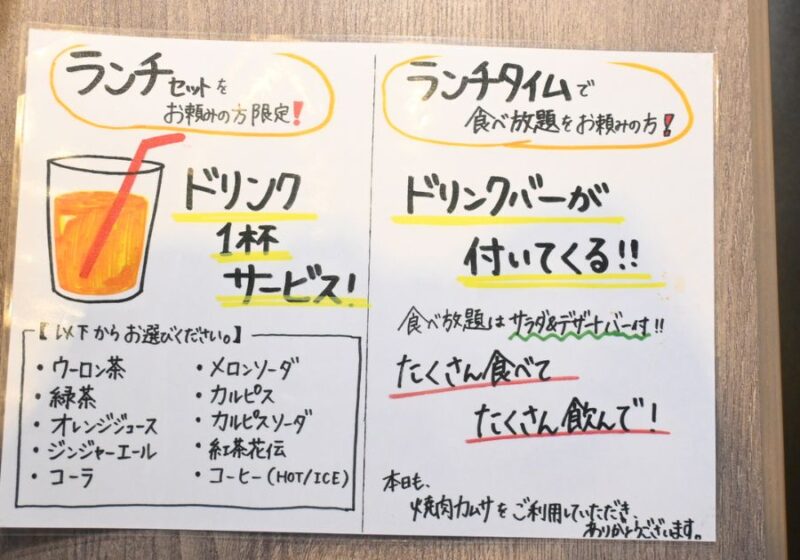 ランチセットを
お頼みの方限定!
ドリンク
1杯
サービス!
【以下からお選びください。】
・ウーロン茶
・緑茶
・オレンジジュース
・ジンジャーエール
・コーラ
・メロンソーダ
・カルピス
・カルピスソーダ
・紅茶花伝
・コーヒー(HOT/ICE)
ランチタイムで
食べ放題をお頼みの方!
ドリンクバーが
付いてくる!!
食べ放題はサラダ&デザートバー付!!
たくさん食べて
たくさん飲んで!
本日も、
焼肉カムサをご利用していただき、
ありがとうございます。